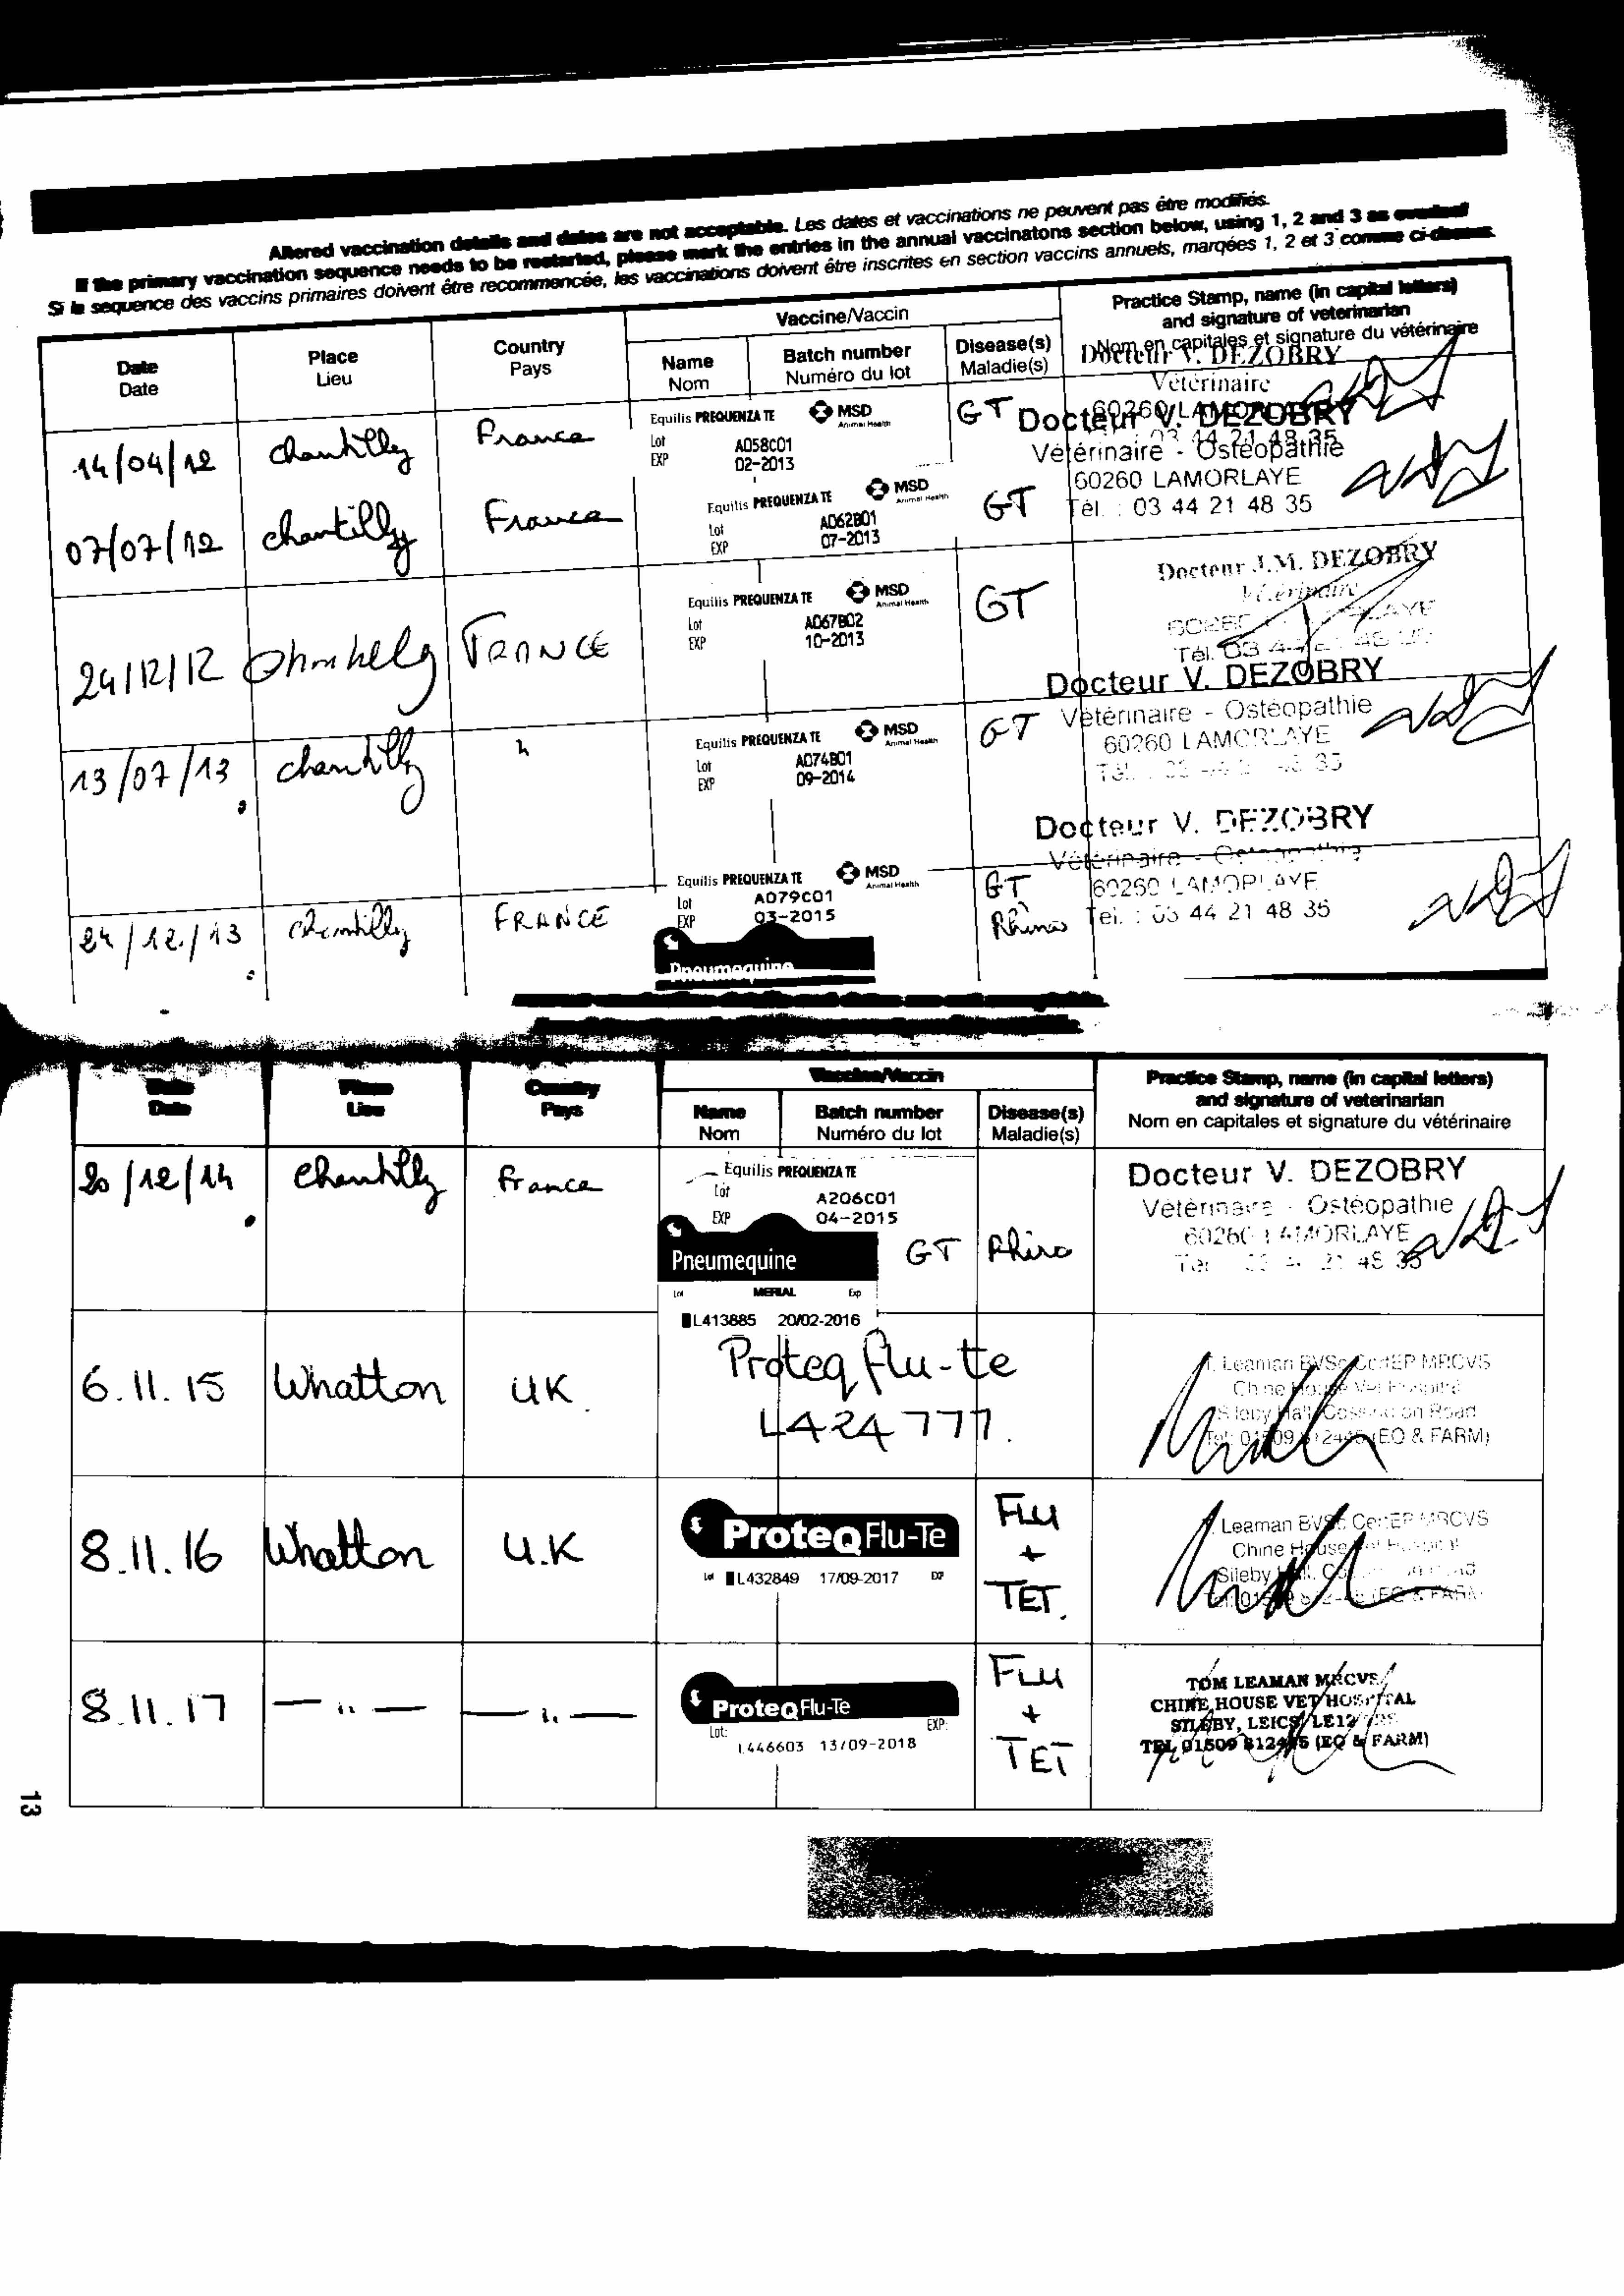 Altered vaccination details and dates are not acceptable. Les dates et vaccinations ne peuvent pas être modifiés.
If the primary vaccination sequence needs to be restarted, please mark the entries in the annual vaccinatons section below, using 1, 2 and 3 as
Si la sequence des vaccins primaires doivent être recommencée, les vaccinations doivent être inscrites en section vaccins annuels, marqées 1, 2 et 3 comme ci-dessus.
Date Place Country Vaccine/Vaccin Practice Stamp, name (in capital letters)
Date Lieu Pays Name Batch number Disease(s) and signature of veterinarian
Nom Numéro du lot Maladie(s) Nom en capitales et signature du vétérinaire
Docteur V. DEZOBRY
Vétérinaire
60260 LAMORLAYE
14/04/12 Chantilly France Equilis PREQUENZA TE MSD Animal Health GT
Lot A058C01
EXP 02-2013
Docteur V. DEZOBRY
Vétérinaire - Ostéopathie
60260 LAMORLAYE
Tél. : 03 44 21 48 35
07/07/12 Chantilly France Equilis PREQUENZA TE MSD Animal Health GT
Lot A062B01
EXP 07-2013
Docteur J.M. DEZOBRY
Vétérinaire
24/12/12 Chantilly FRANCE Equilis PREQUENZA TE MSD Animal Health GT
Lot A067B02
EXP 10-2013
Docteur V. DEZOBRY
Vétérinaire - Ostéopathie
60260 LAMORLAYE
13/07/13 chantilly " Equilis PREQUENZA TE MSD Animal Health GT
Lot A074B01
EXP 09-2014
Docteur V. DEZOBRY
Vétérinaire - Ostéopathie
60260 LAMORLAYE
Tel. : 03 44 21 48 35
24/12/13 Chantilly FRANCE Equilis PREQUENZA TE MSD Animal Health GT
Lot A079C01 Rhino
EXP 03-2015
Pneumequine
Date Place Country Vaccine/Vaccin Practice Stamp, name (in capital letters)
Date Lieu Pays Name Batch number Disease(s) and signature of veterinarian
Nom Numéro du lot Maladie(s) Nom en capitales et signature du vétérinaire
20/12/14 Chantilly France Equilis PREQUENZA TE Docteur V. DEZOBRY
Lot A206C01 Vétérinaire - Ostéopathie
EXP 04-2015 60260 LAMORLAYE
Pneumequine GT Rhino
Lot MERIAL Exp
L413885 20/02-2016
6.11.15 Whatton UK. Proteq flu-te
L424777.
T. Leaman BVSc CertEP MRCVS
Chine House Vet Hospital
Sileby Hall, Cossington Road
(EQ & FARM)
8.11.16 Whatton U.K ProteqFlu-Te FLU + TET.
Lot L432849 17/09-2017 EXP
Leaman BVSc CertEP MRCVS
Chine House Vet Hospital
Sileby Hall,
(EQ & FARM
8.11.17 — " — — " — ProteqFlu-Te FLU + TET
Lot: EXP:
L446603 13/09-2018
TOM LEAMAN MRCVS
CHINE HOUSE VET HOSPITAL
SILEBY, LEICS, LE12
TEL 01509 812445 (EQ & FARM)
13